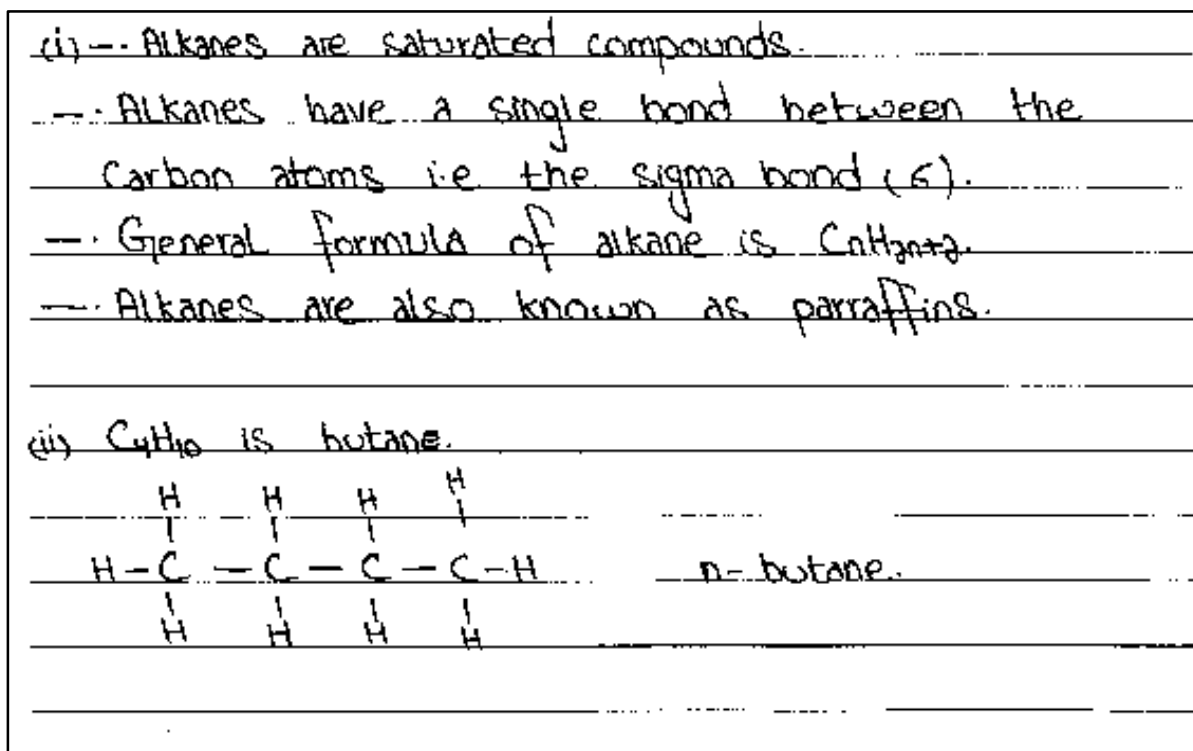 (i) -· Alkanes are saturated compounds.
-· Alkanes have a single bond between the
Carbon atoms i.e the sigma bond (σ).
-· General formula of alkane is CnH2n+2.
-· Alkanes are also known as parraffins.
(ii) C4H10 is butane.
H H H H
H - C - C - C - C - H n-butane.
H H H H